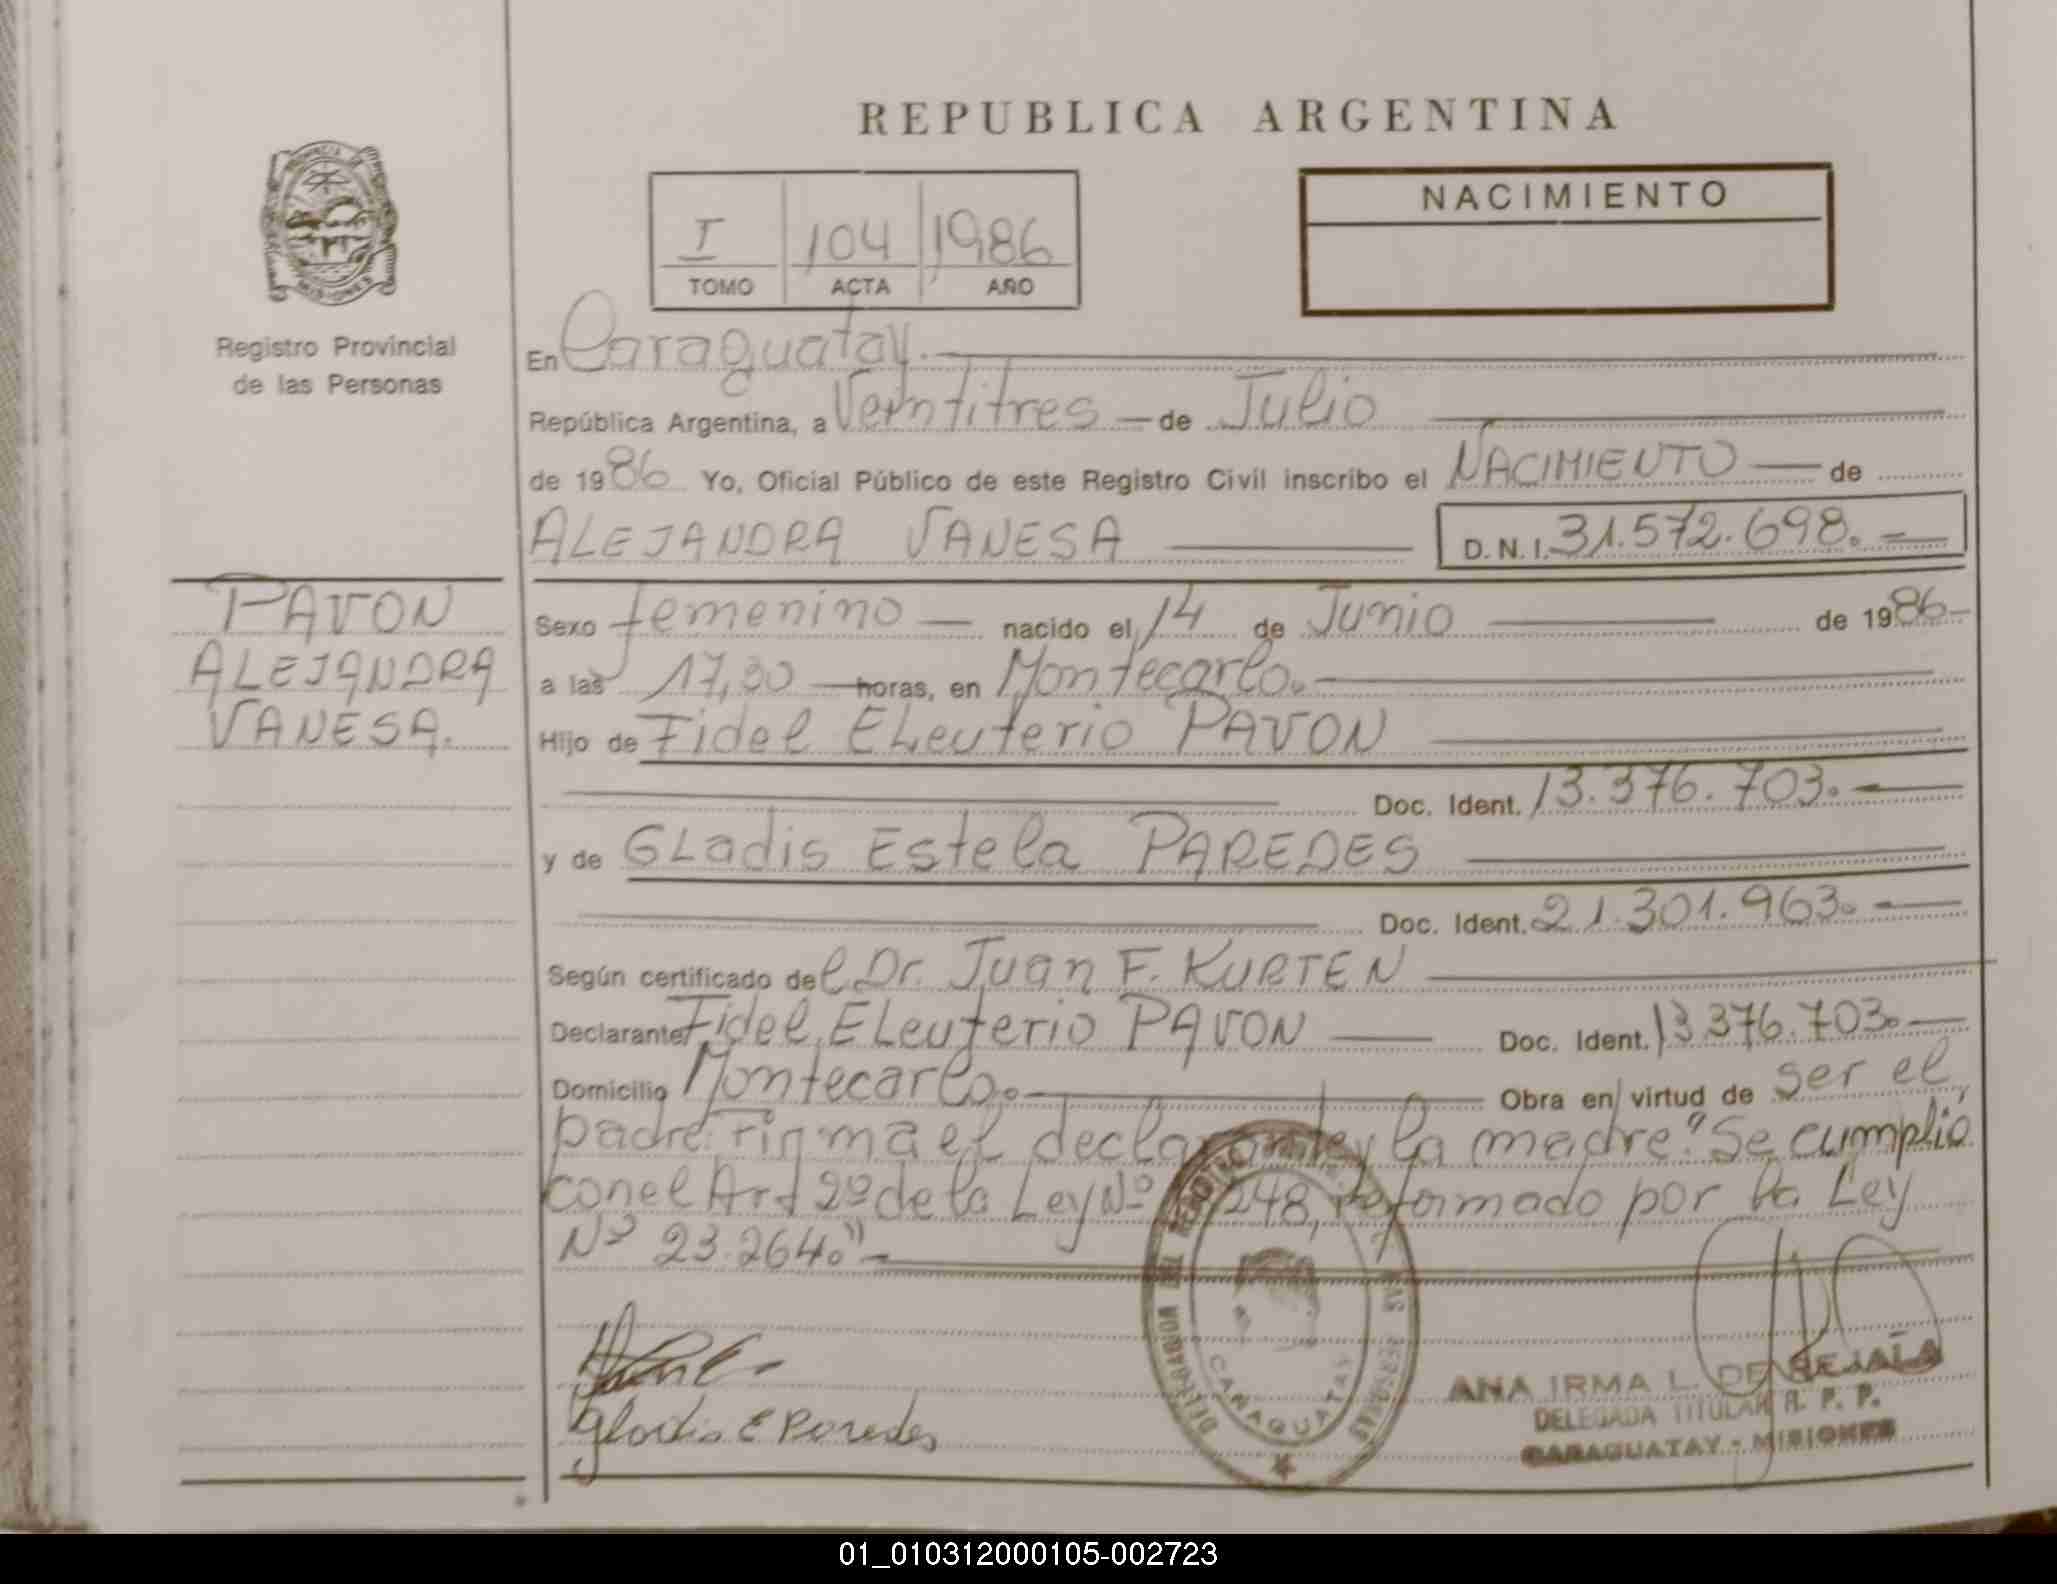 REPUBLICA ARGENTINA
PROVINCIA DE
MISIONES
Registro Provincial
de las Personas
I 104 1986
TOMO ACTA AÑO
NACIMIENTO
En Caraguatay.
República Argentina, a Veintitres — de Julio
de 1986 Yo, Oficial Público de este Registro Civil inscribo el NACIMIENTO — de
ALEJANDRA VANESA — D. N. I. 31.572.698. —
PAVON
ALEJANDRA
VANESA.
Sexo femenino — nacido el 14 de Junio — de 1986 —
a las 17,30 — horas, en Montecarlo. —
Hijo de Fidel ELeuterio PAVON —
Doc. Ident. 13.376.703. —
y de GLadis Estela PAREDES —
Doc. Ident. 21.301.963. —
Según certificado del Dr. Juan F. KURTEN —
Declarante Fidel ELeuterio PAVON — Doc. Ident. 13.376.703. —
Domicilio Montecarlo. — Obra en virtud de ser el
padre. Firma el declarante y la madre. "Se cumplio
con el Art 2º de la Ley Nº 248, reformado por la Ley
Nº 23.264." —
Gladis E Paredes
DELEGACION DEL REGISTRO DE LAS PERSONAS
CARAGUATAY
ANA IRMA L. DE
DELEGADA TITULAR R. P. P.
CARAGUATAY - MISIONES
01_010312000105-002723